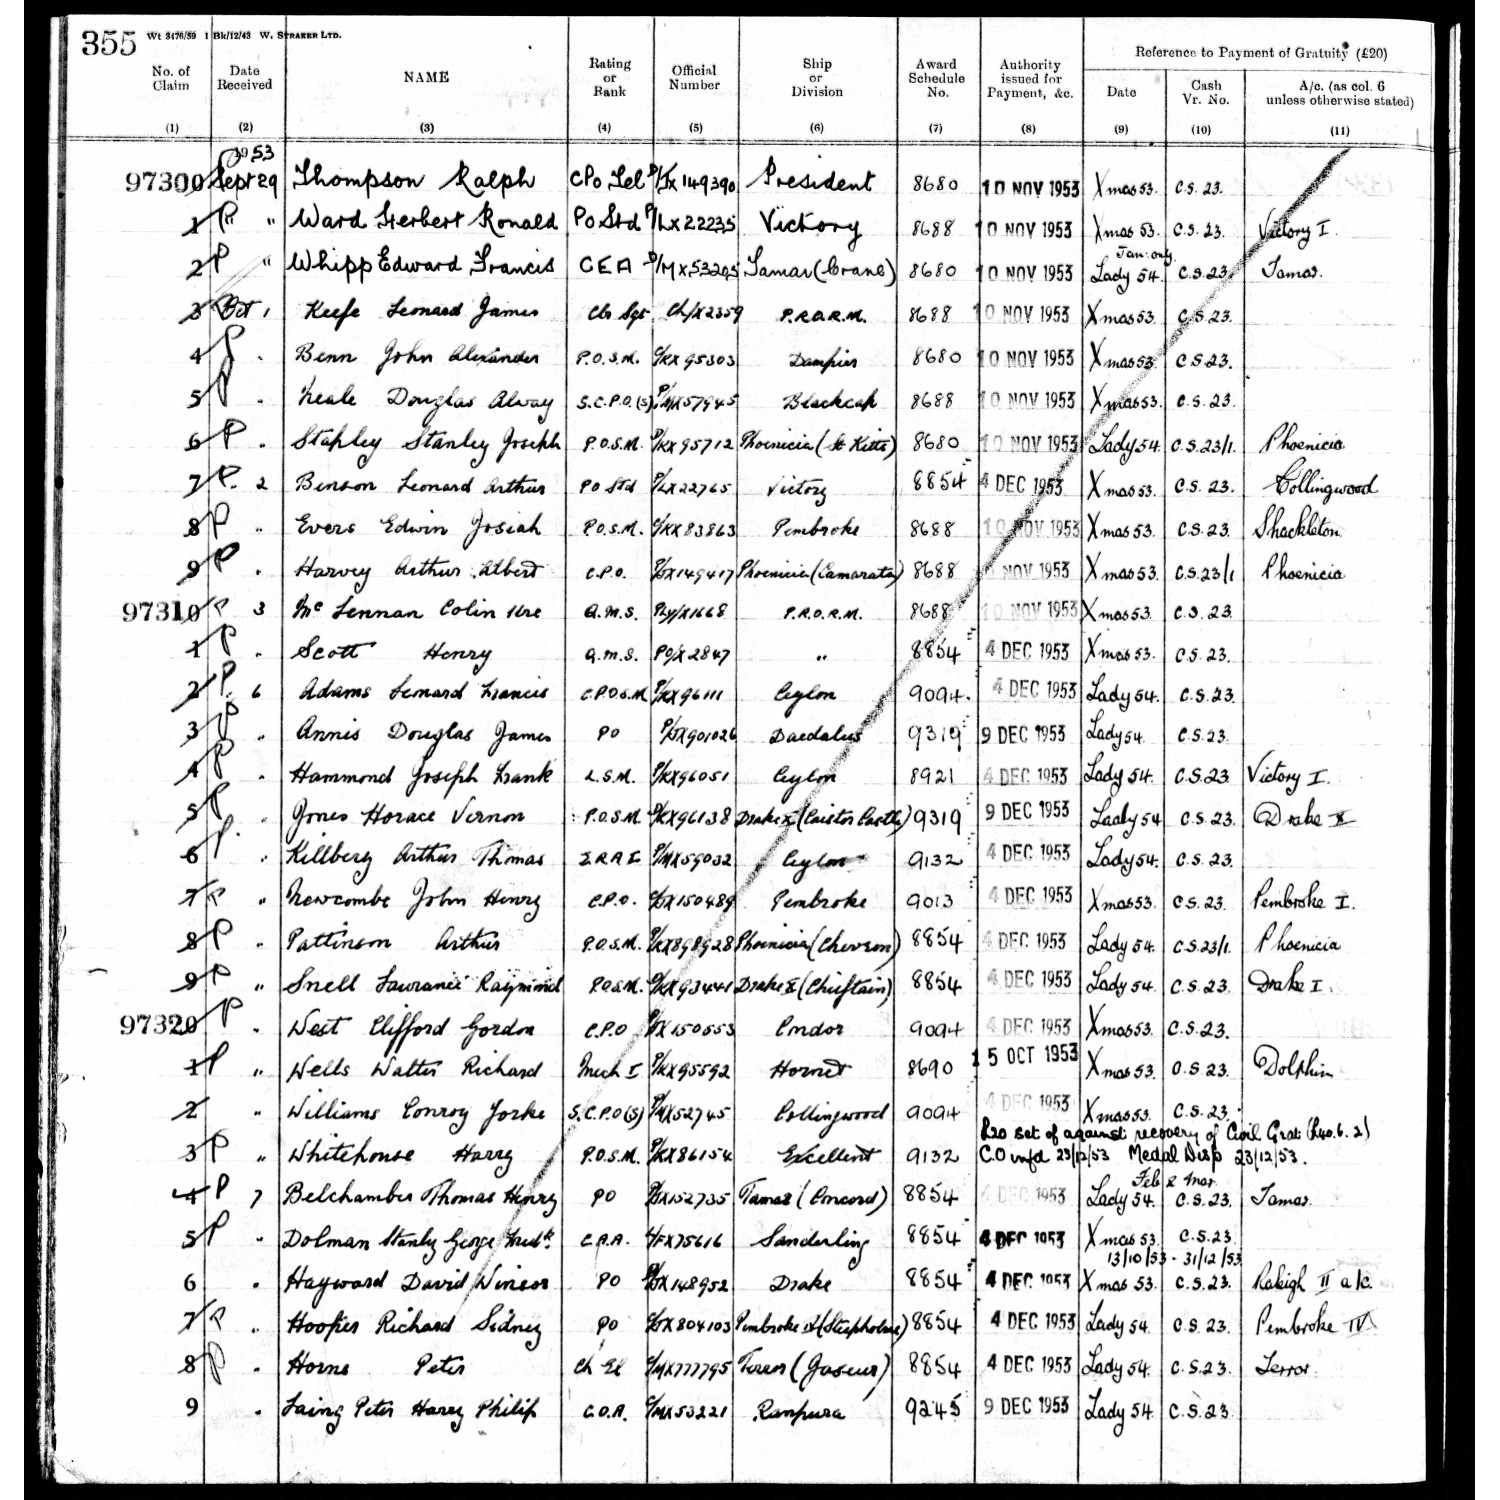 355 Wt 3476/59 1 Bk/12/43 W. STRAKER LTD.
Reference to Payment of Gratuity (£20)
No. of Claim Date Received NAME Rating or Rank Official Number Ship or Division Award Schedule No. Authority issued for Payment, &c. Date Cash Vr. No. A/c. (as col. 6 unless otherwise stated)
(1) (2) (3) (4) (5) (6) (7) (8) (9) (10) (11)
1953
97300 Sept 29 Thompson Ralph CPO Tel P/JX 149390 President 8680 10 NOV 1953 Xmas 53. C.S. 23.
1 P " " Ward Herbert Ronald PO Std P/LX 22235 Victory 8688 10 NOV 1953 Xmas 53. C.S. 23. Victory I.
Jan: only.
2 P " Whipp Edward Francis C E A P/MX 53205 Tamar (Crane) 8680 10 NOV 1953 Lady 54. C.S. 23. Tamar.
3 Oct 1 Keefe Leonard James Clr Sgt. Ch/X 2359 P.R.O.R.M. 8688 10 NOV 1953 Xmas 53. C.S. 23.
4 P . Benn John Alexander P.O.S.M. C/KX 95303 Dampier 8680 10 NOV 1953 Xmas 53 C.S. 23.
5 P . Neale Douglas Alway S.C.P.O.(S). P/MX 57945 Blackcap 8688 10 NOV 1953 Xmas 53. C.S. 23.
6 P . Stapley Stanley Joseph P.O.S.M. P/KX 95712 Phoenicia (St Kitts) 8680 10 NOV 1953 Lady 54. C.S. 23/1. Phoenicia
7 P. 2 Benson Leonard Arthur PO Std P/LX 22765 Victory 8854 4 DEC 1953 Xmas 53. C.S. 23. Collingwood
8 P " Evers Edwin Josiah P.O.S.M. C/KX 83863 Pembroke 8688 10 NOV 1953 Xmas 53. C.S. 23. Shackleton
9 P . Harvey Arthur Albert C.P.O. P/JX 149417 Phoenicia (Camarata) 8688 NOV 1953 Xmas 53. C.S. 23/1 Phoenicia
97310 P 3 McLennan Colin Ure Q.M.S. Ply/X 1668 P.R.O.R.M. 8688 10 NOV 1953 Xmas 53. C.S. 23
1 P . Scott Henry Q.M.S. PO/X 2847 " 8854 4 DEC 1953 Xmas 53. C.S. 23.
2 P. 6 Adams Leonard Francis C.P.O.S.M P/KX 96111 Ceylon 9094. 4 DEC 1953 Lady 54. C.S. 23.
3 P " Annis Douglas James PO P/JX 901026 Daedalus 9319 9 DEC 1953 Lady 54. C.S. 23.
4 P . Hammond Joseph Frank L.S.M. P/KX 96051 Ceylon 8921 4 DEC 1953 Lady 54. C.S. 23 Victory I.
5 P . Jones Horace Vernon P.O.S.M. D/KX 96138 Drake II (Caistor Castle) 9319 9 DEC 1953 Lady 54 C.S. 23. Drake II
6 P . Killberg Arthur Thomas E R A I P/MX 59032 Ceylon 9132 4 DEC 1953 Lady 54. C.S. 23.
7 P " Newcombe John Henry C.P.O. C/JX 150489 Pembroke 9013 4 DEC 1953 Xmas 53. C.S. 23. Pembroke I.
8 P " Pattinson Arthur P.O.S.M. C/KX 898928 Phoenicia (Chevron) 8854 4 DEC 1953 Lady 54. C.S. 23/1. Phoenicia
9 P " Snell Lawrance Raymond P.O.S.M. D/KX 93441 Drake I (Chieftain) 8854 4 DEC 1953 Lady 54. C.S. 23. Drake I.
97320 P . West Clifford Gordon C.P.O P/JX 150553 Condor 9094 4 DEC 1953 Xmas 53. C.S. 23.
1 P " Wells Walter Richard Mech I P/KX 95592 Hornet 8690 15 OCT 1953 Xmas 53. C.S. 23. Dolphin
2 " Williams Conroy Yorke S.C.P.O(S) P/MX 52745 Collingwood 9094 4 DEC 1953 Xmas 53. C.S. 23.
£20 set of against recovery of Civil Grat: (£40.6.2)
3 P " Whitehouse Harry P.O.S.M. P/KX 86154 Excellent 9132 C.O infd 23/12/53 Medal Disp 23/12/53.
Feb & Mar.
4 P 7 Belchamber Thomas Henry PO P/JX 152735 Tamar (Concord) 8854 4 DEC 1953 Lady 54. C.S. 23. Tamar.
5 P " Dolman Stanley George Fredk. C.A.A. L/FX 75616 Sanderling 8854 4 DEC 1953 Xmas 53. C.S. 23.
13/10/53 - 31/12/53
6 " Hayward David Winsor PO D/JX 148952 Drake 8854 4 DEC 1953 Xmas 53. C.S. 23. Raleigh II a/c.
7 P " Hooper Richard Sidney PO C/JX 804103 Pembroke IV (Steepholme) 8854 4 DEC 1953 Lady 54. C.S. 23. Pembroke IV
8 P . Horne Peter Ch El C/MX 777795 Terror (Gaseur) 8854 4 DEC 1953 Lady 54. C.S. 23. Terror.
9 . Laing Peter Harry Philip C.O.A. C/MX 53221 Ranpura 9245 9 DEC 1953 Lady 54. C.S. 23.